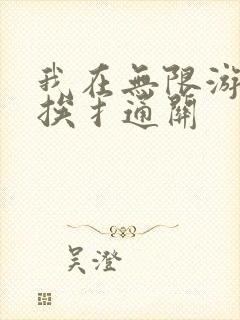 我在無限游
挨扌通關
吴澄